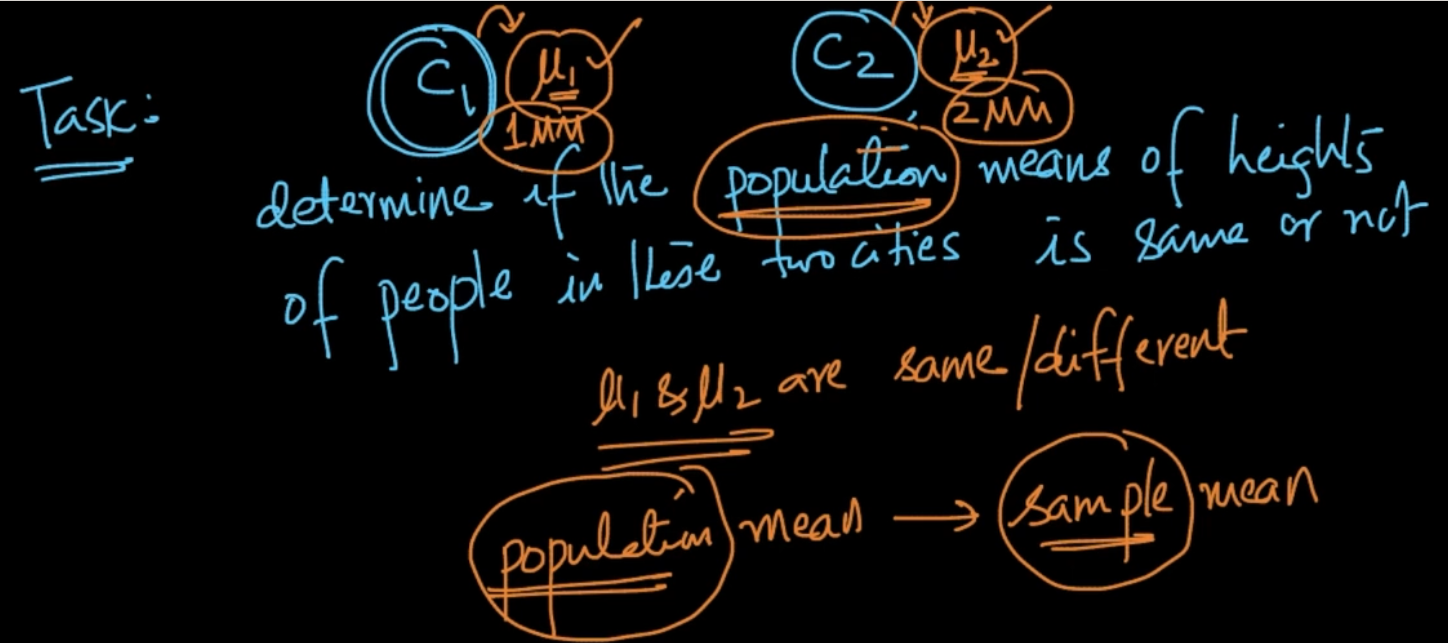 C1 μ1 C2 μ2
1MM 2MM
Task:
determine if the population means of heights
of people in these two cities is same or not
μ1 & μ2 are same/different
population mean → sample mean